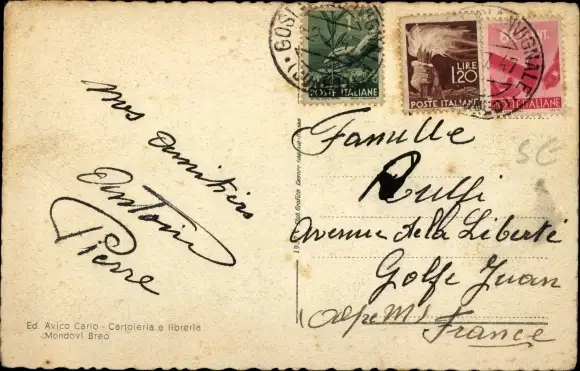 POSTE ITALIANE
LIRE
1.20
POSTE ITALIANE
POSTE ITALIANE
Mes amitiés
Antoine
Pierre
Famille
Rulfi
Avenue de la Liberté
Golfe Juan
(Alpe M)
France
SE
Ed. Avico Carlo - Cartoleria e libreria
Mondovì Breo